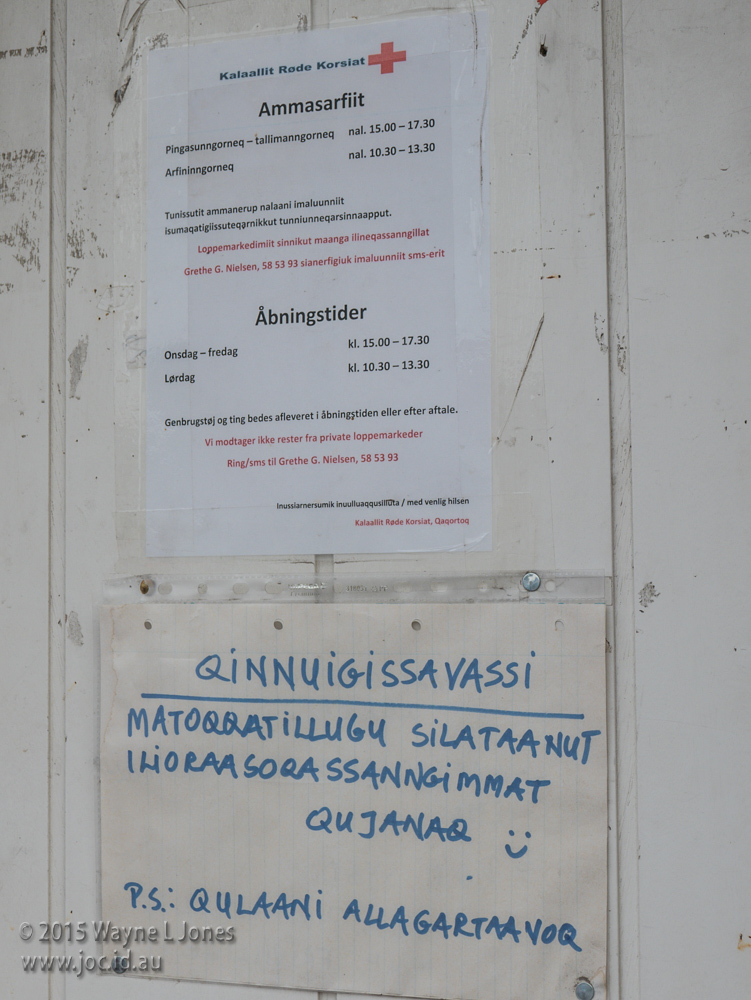 Kalaallit Røde Korsiat
Ammasarfiit
Pingasunngorneq – tallimanngorneq nal. 15.00 – 17.30
Arfininngorneq nal. 10.30 – 13.30
Tunissutit ammanerup nalaani imaluunniit
isumaqatigiissuteqarnikkut tunniunneqarsinnaapput.
Loppemarkedimiit sinnikut maanga ilineqassanngillat
Grethe G. Nielsen, 58 53 93 sianerfigiuk imaluunniit sms-erit
Åbningstider
Onsdag – fredag kl. 15.00 – 17.30
Lørdag kl. 10.30 – 13.30
Genbrugstøj og ting bedes afleveret i åbningstiden eller efter aftale.
Vi modtager ikke rester fra private loppemarkeder
Ring/sms til Grethe G. Nielsen, 58 53 93
Inussiarnersumik inuulluaqqusilluta / med venlig hilsen
Kalaallit Røde Korsiat, Qaqortoq
QINNUIGISSAVASSI
MATOQQATILLUGU SILATAANUT
ILIORAASOQASSANNGIMMAT
QUJANAQ
P.S.: QULAANI ALLAGARTAAVOQ
© 2015 Wayne L Jones
www.joc.id.au